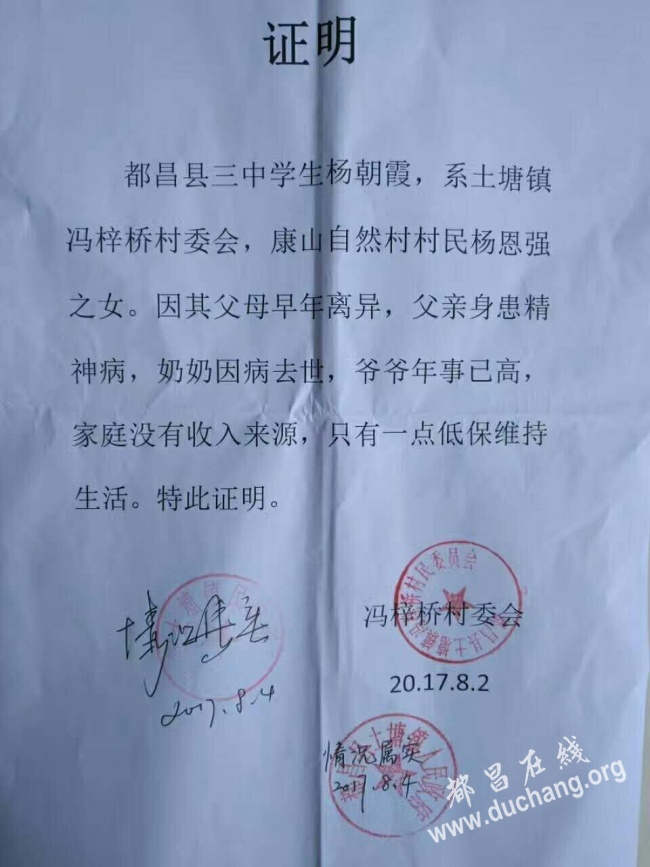 证明
都昌县三中学生杨朝霞，系土塘镇
冯梓桥村委会，康山自然村村民杨恩强
之女。因其父母早年离异，父亲身患精
神病，奶奶因病去世，爷爷年事已高，
家庭没有收入来源，只有一点低保维持
生活。特此证明。
冯梓桥村委会
20.17.8.2
2017.8.4
情况属实
2017.8.4
都昌在线
www.duchang.org